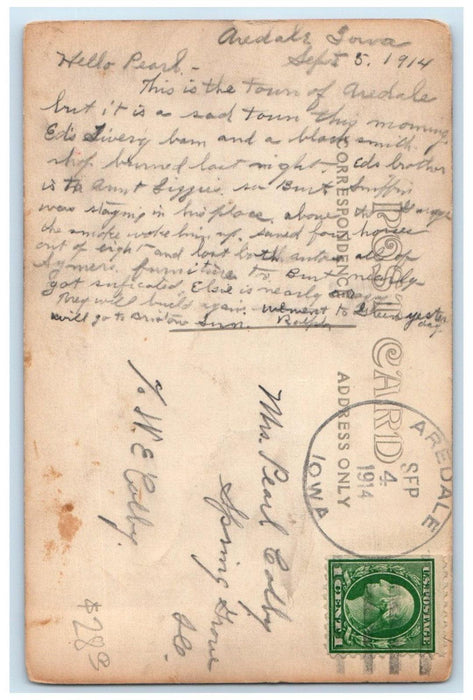 Aredale Iowa
Sept 5, 1914
Hello Pearl. -
This is the town of Aredale
but it is a sad town this morning,
Ed's Livery barn and a blacksmith
shop burned last night. Ed's brother
is to Aunt Liggies, so Burt Sniffin
was staying in his place, above,
the smoke woke him up, saved four horses
out of eight and lost both autos, all of
furniture too. Burt nearly
got suficated, Elsie is nearly
They will build again. went to yester
day.
will go to Bristow Sun. Ralph
POST CARD
CORRESPONDENCE
ADDRESS ONLY
AREDALE
SEP
4
1914
IOWA
U.S. POSTAGE
1 CENT 1
Mrs. Pearl Colby
Spring Grove
Ia.
% W E Colby.